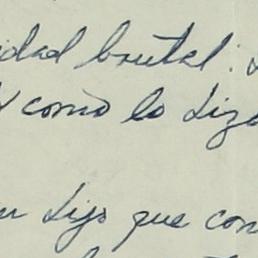 idad brutal.
y como lo diga
dijo que con